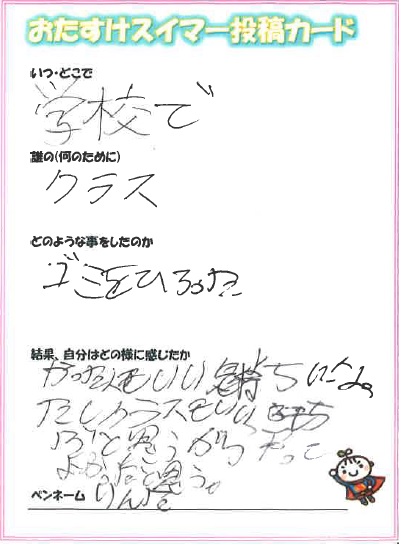 おたすけスイマー投稿カード
いつ・どこで
学校で
誰の(何のために)
クラス
どのような事をしたのか
ゴミをひろった
結果、自分はどの様に感じたか
いい気持ちに
たしクラスもいい
だと思うから やって
よかったと思う。
ペンネーム りん